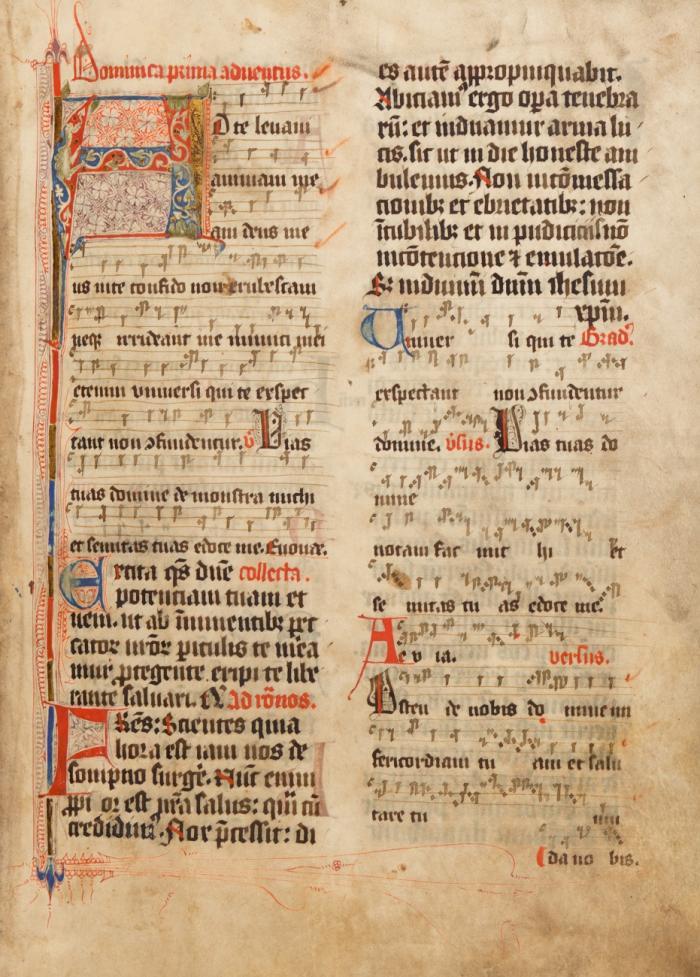 Dominica prima aduentus.
Ad te leuaui
animam me
am deus me
us in te confido non erubescam
neqꝫ irrideant me inimici mei
etenim vniuersi qui te exspec
tant non ↄfundentur. v̄ Vias
tuas domine demonstra michi
et semitas tuas edoce me. Euouae.
Excita qs̄ dn̄e collecta.
potentiam tuam et
ueni. ut ab īminentibꝫ pct
catoꝝ nr̄oꝝ ꝑiculis te mea
mur ꝓtegente eripi te libe
rante saluari. Ad rōnos.
Fr̄es: Scientes quia
hora est iam nos de
sompno surgẽ. Nūc enim
ꝓpior est nr̄a salus: qm̄ cū
credidimꝰ. Nox p̄cessit: di
es autē appropinquabit.
Abiciamꝰ ergo oꝑa tenebra
rū: et induamur arma lu
cis. sic ut in die honeste am
bulemus. Non in cōmessa
tionibꝫ et ebrietatibꝫ: non
ī cubilibꝫ et inpudiciciis nō
in cōtencione ⁊ emulatōe.
Sꝫ induimī dn̄m ihesum
xp̄m.
Uniuer si qui te Grad̕.
exspectant non ↄfundentur
domine. v̄sus. Vias tuas do
mine
notam fac mi chi Et
se mitas tu as edoce me.
Ae v ia. versus.
Osten de nobis do mine mi
sericordiam tu am et salu
tare tu um
da no bis.